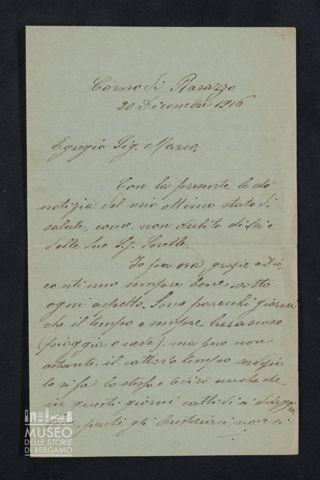 Corno di Rosazzo
20 Dicembre 1916
Egregio Sig. Marco,
Con la presente le do
notizia del mio ottimo stato di
salute, come non dubito di Lei e
delle Sue Sig. Sorelle.
Io per ora grazie a Dio
continuo sempre bene sotto
ogni aspetto. Sono parecchi giorni
che il tempo è sempre burrascoso
(pioggia e neve), ma però non
ostante il cattivo tempo
lo si fa lo stesso e anche
in questi giorni cattivi si
perchè gli Austriaci non si
MUSEO
DELLE STORIE
DI BERGAMO